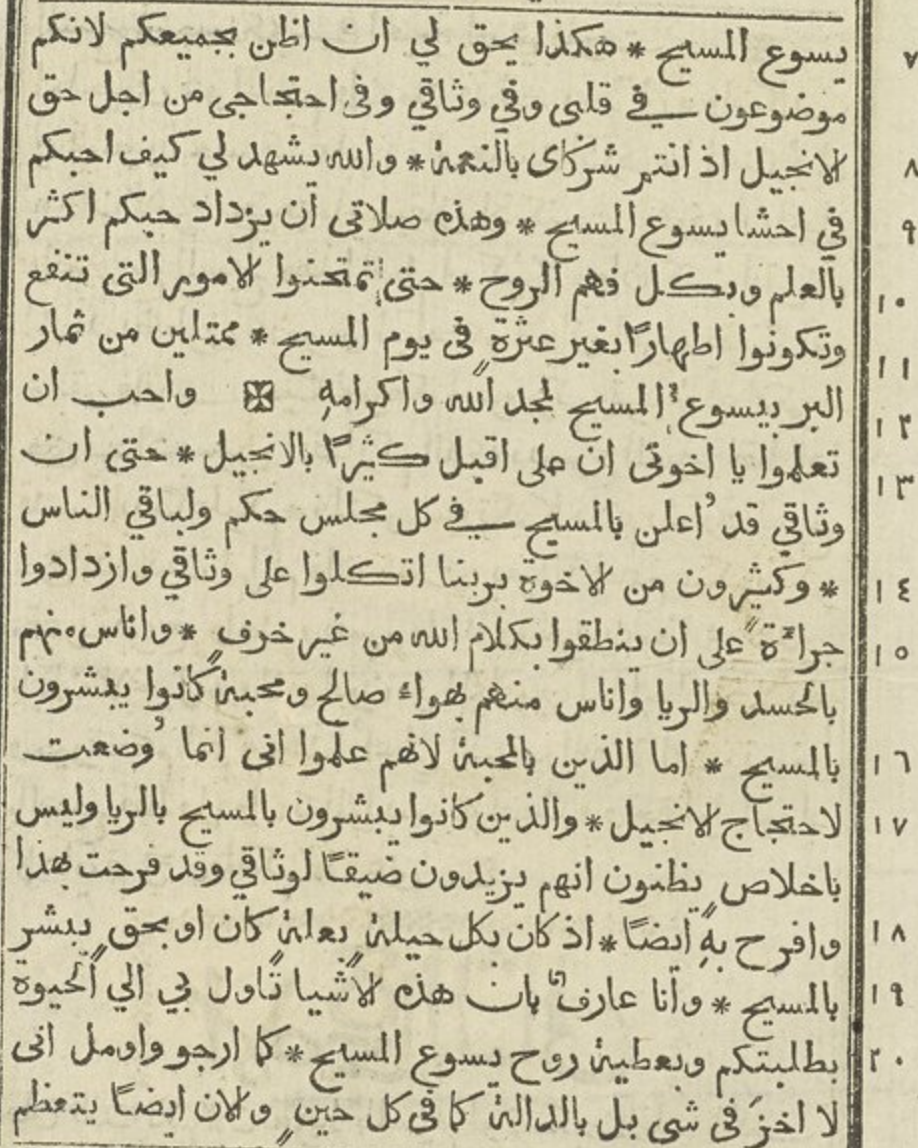 يسوع المسيح * هكذا يحق لي ان اظن بجميعكم لانكم ٧
موضوعون في قلبى وفي وثاقي وفى احتجاجى من اجل حق
الانجيل اذ انتم شركاى بالنعمة * والله يشهد لي كيف احبكم ٨
في احشا يسوع المسيح * وهذه صلاتى ان يزداد حبكم اكثر ٩
بالعلم وبكل فهم الروح * حتى تمتحنوا الامور التى تنفع ١٠
وتكونوا اطهارًا بغير عثرةٍ فى يوم المسيح * ممتلين من ثمار ١١
البر بيسوع المسيح لمجد الله واكرامهِ ✠ واحب ان ١٢
تعلموا يا اخوتى ان على اقبل كثيرًا بالانجيل * حتى ان ١٣
وثاقي قد اُعلن بالمسيح في كل مجلس حكم ولباقي الناس
* وكثيرون من الاخوة بربنا اتكلوا على وثاقي وازدادوا ١٤
جراءةً على ان ينطقوا بكلام الله من غير خرفٍ * واناس منهم ١٥
بالحسد والريا واناس منهم بهواء صالح ومحبة كانوا يبشرون
بالمسيح * اما الذين بالمحبة لانهم علموا انى انما وُضعت ١٦
لاحتجاج الانجيل * والذين كانوا يبشرون بالمسيح بالريا وليس ١٧
باخلاصٍ يظنون انهم يزيدون ضيقًا لوثاقي وقد فرحت بهذا
وافرح بهِ ايضًا * اذ كان بكل حيلةٍ بعلةٍ كان او بحقٍ يبشر ١٨
بالمسيح * وانا عارف بان هذه الاشيا تاول بي الي الحيوة ١٩
بطلبتكم وبعطية روح يسوع المسيح * كما ارجو واومل انى ٢٠
لا اخزَ فى شى بل بالدالة كما فى كل حينٍ والان ايضًا يتعظم